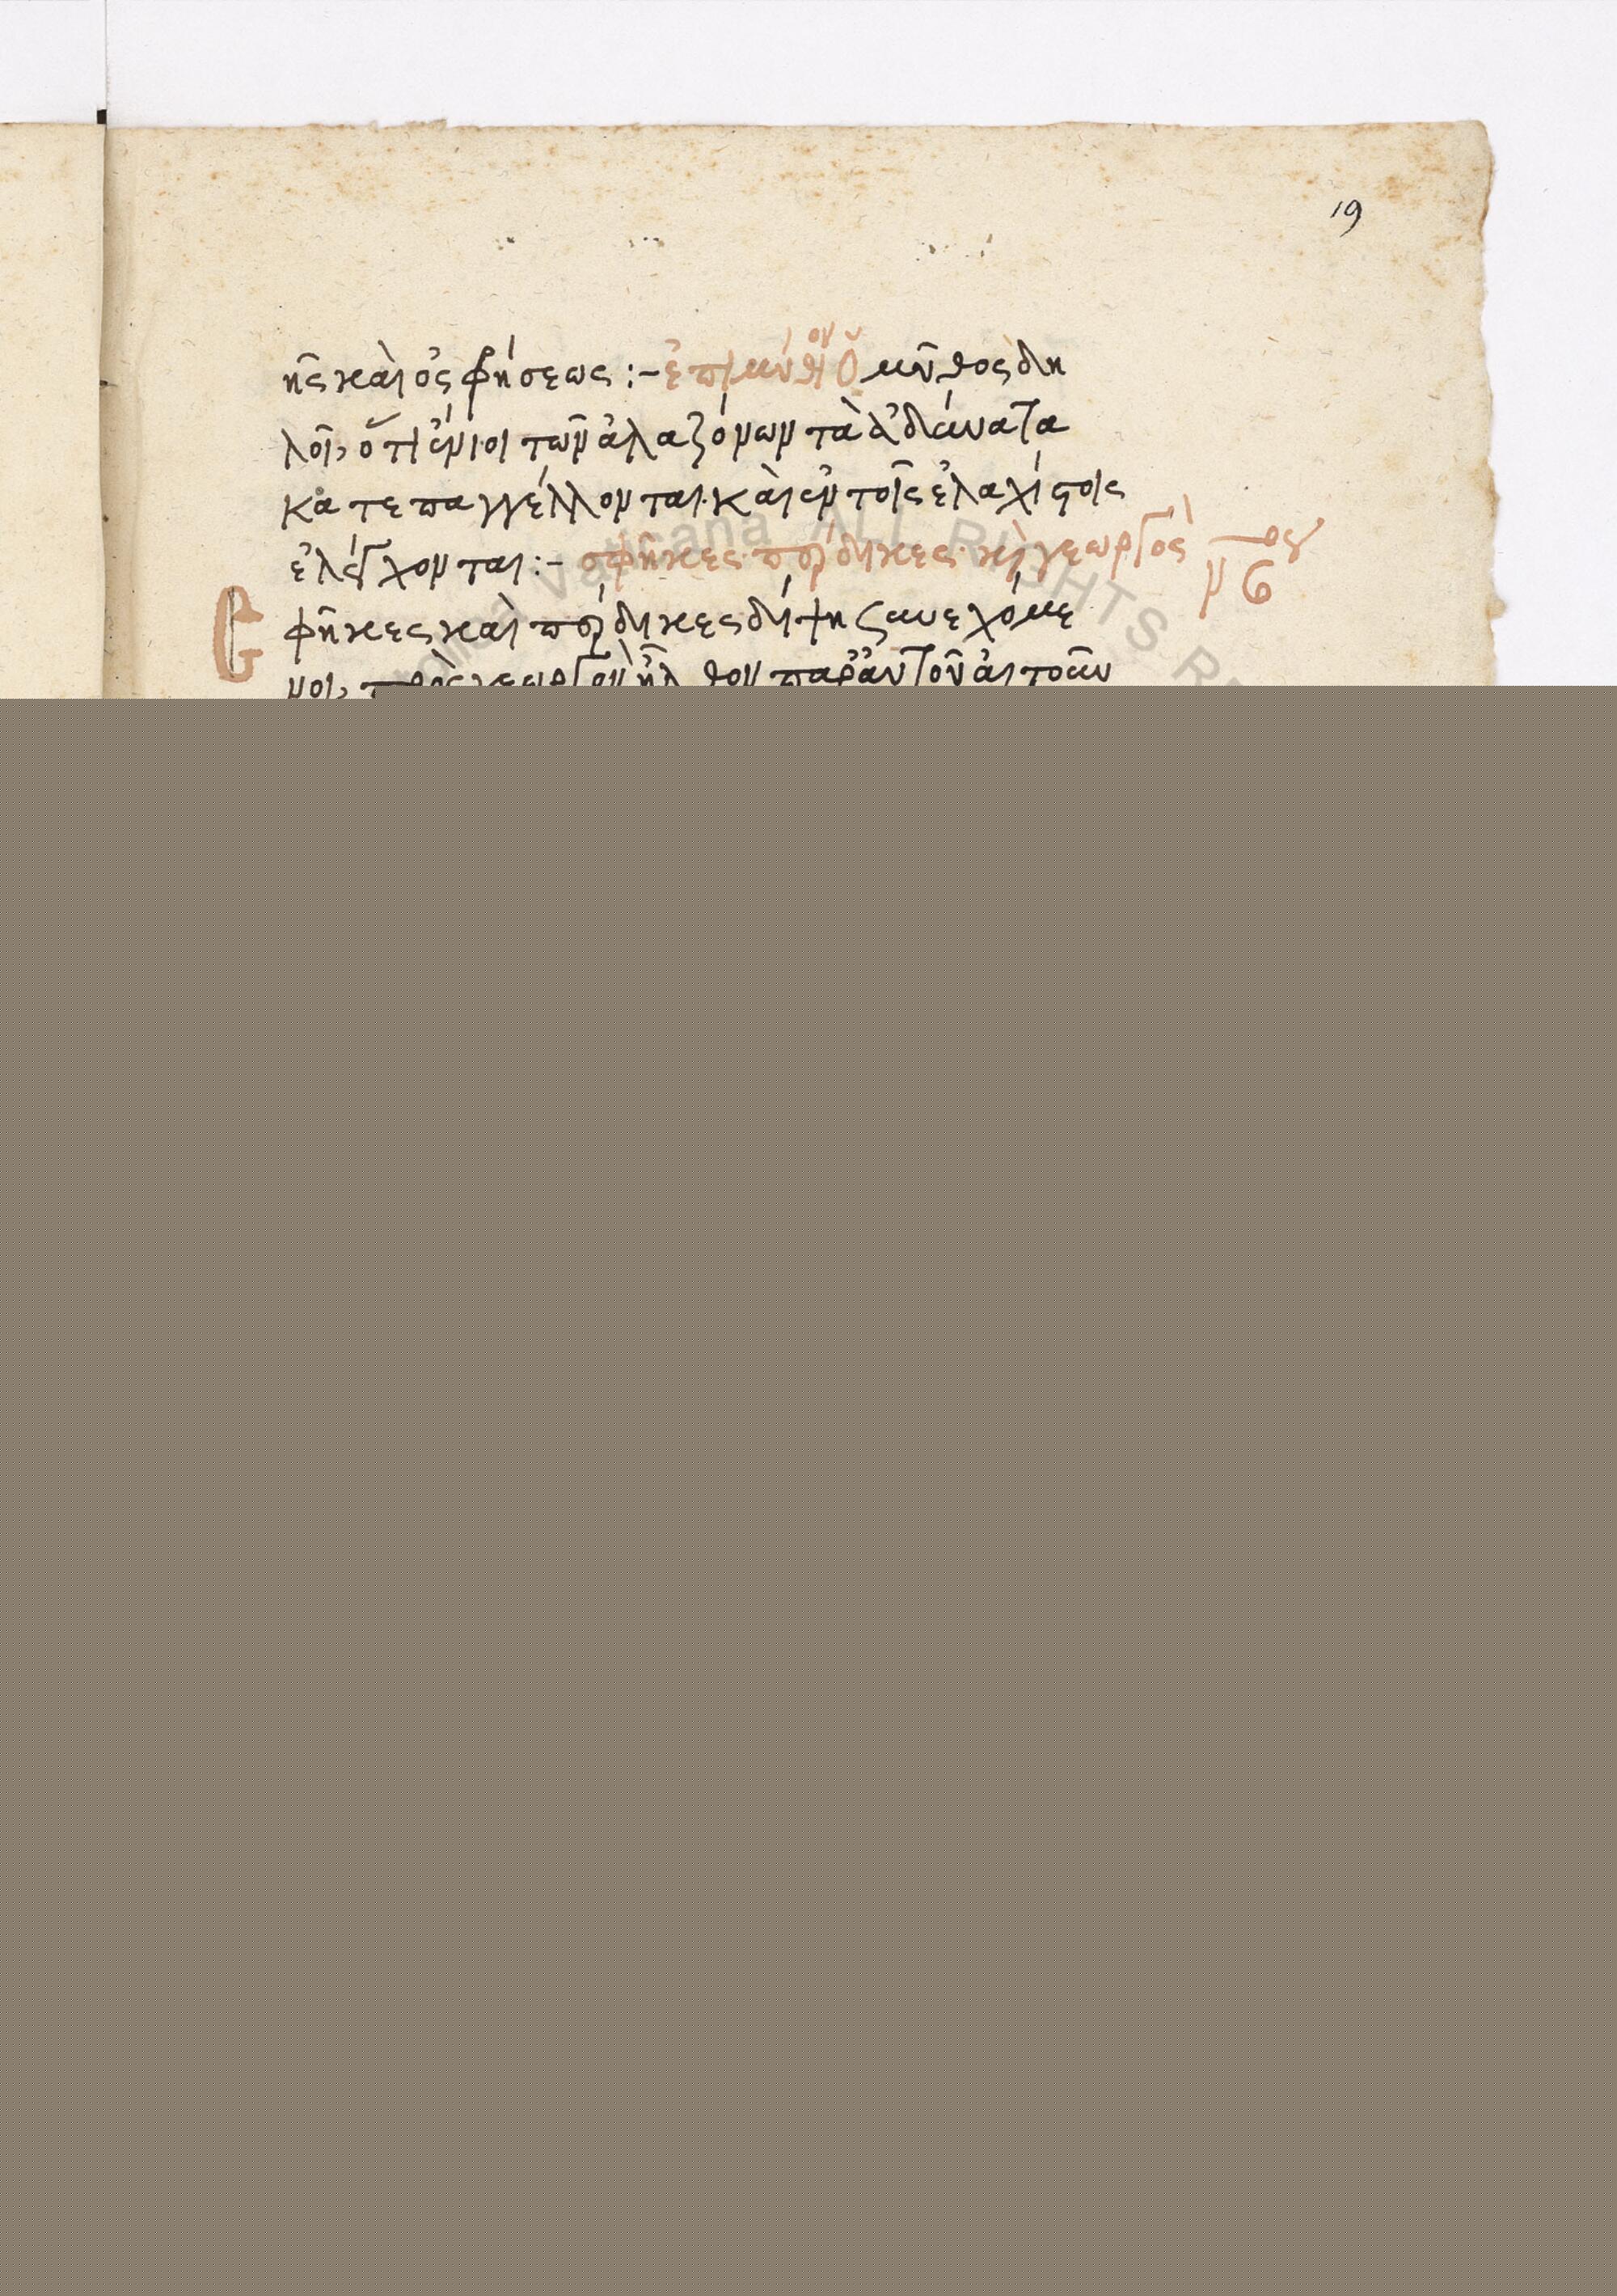 19
ῆς καὶ ὀσφρήσεως :- ἐπιμύθιον Ὁ μῦθος δη
λοῖ, ὅτι ἔνιοι τῶν ἀλαζόνων τὰ ἀδύνατα
κατεπαγγέλλονται. καὶ ἐν τοῖς ἐλαχίστοις
ἐλέγχονται :- σφῆκες. πέρδικες. κὶ γεωργὸς
Σφῆκες καὶ πέρδικες δίψη συνεχόμε
νοι, πρὸς γεωργὸν ἦλθον παρ' αὐτοῦ αἰτοῦν